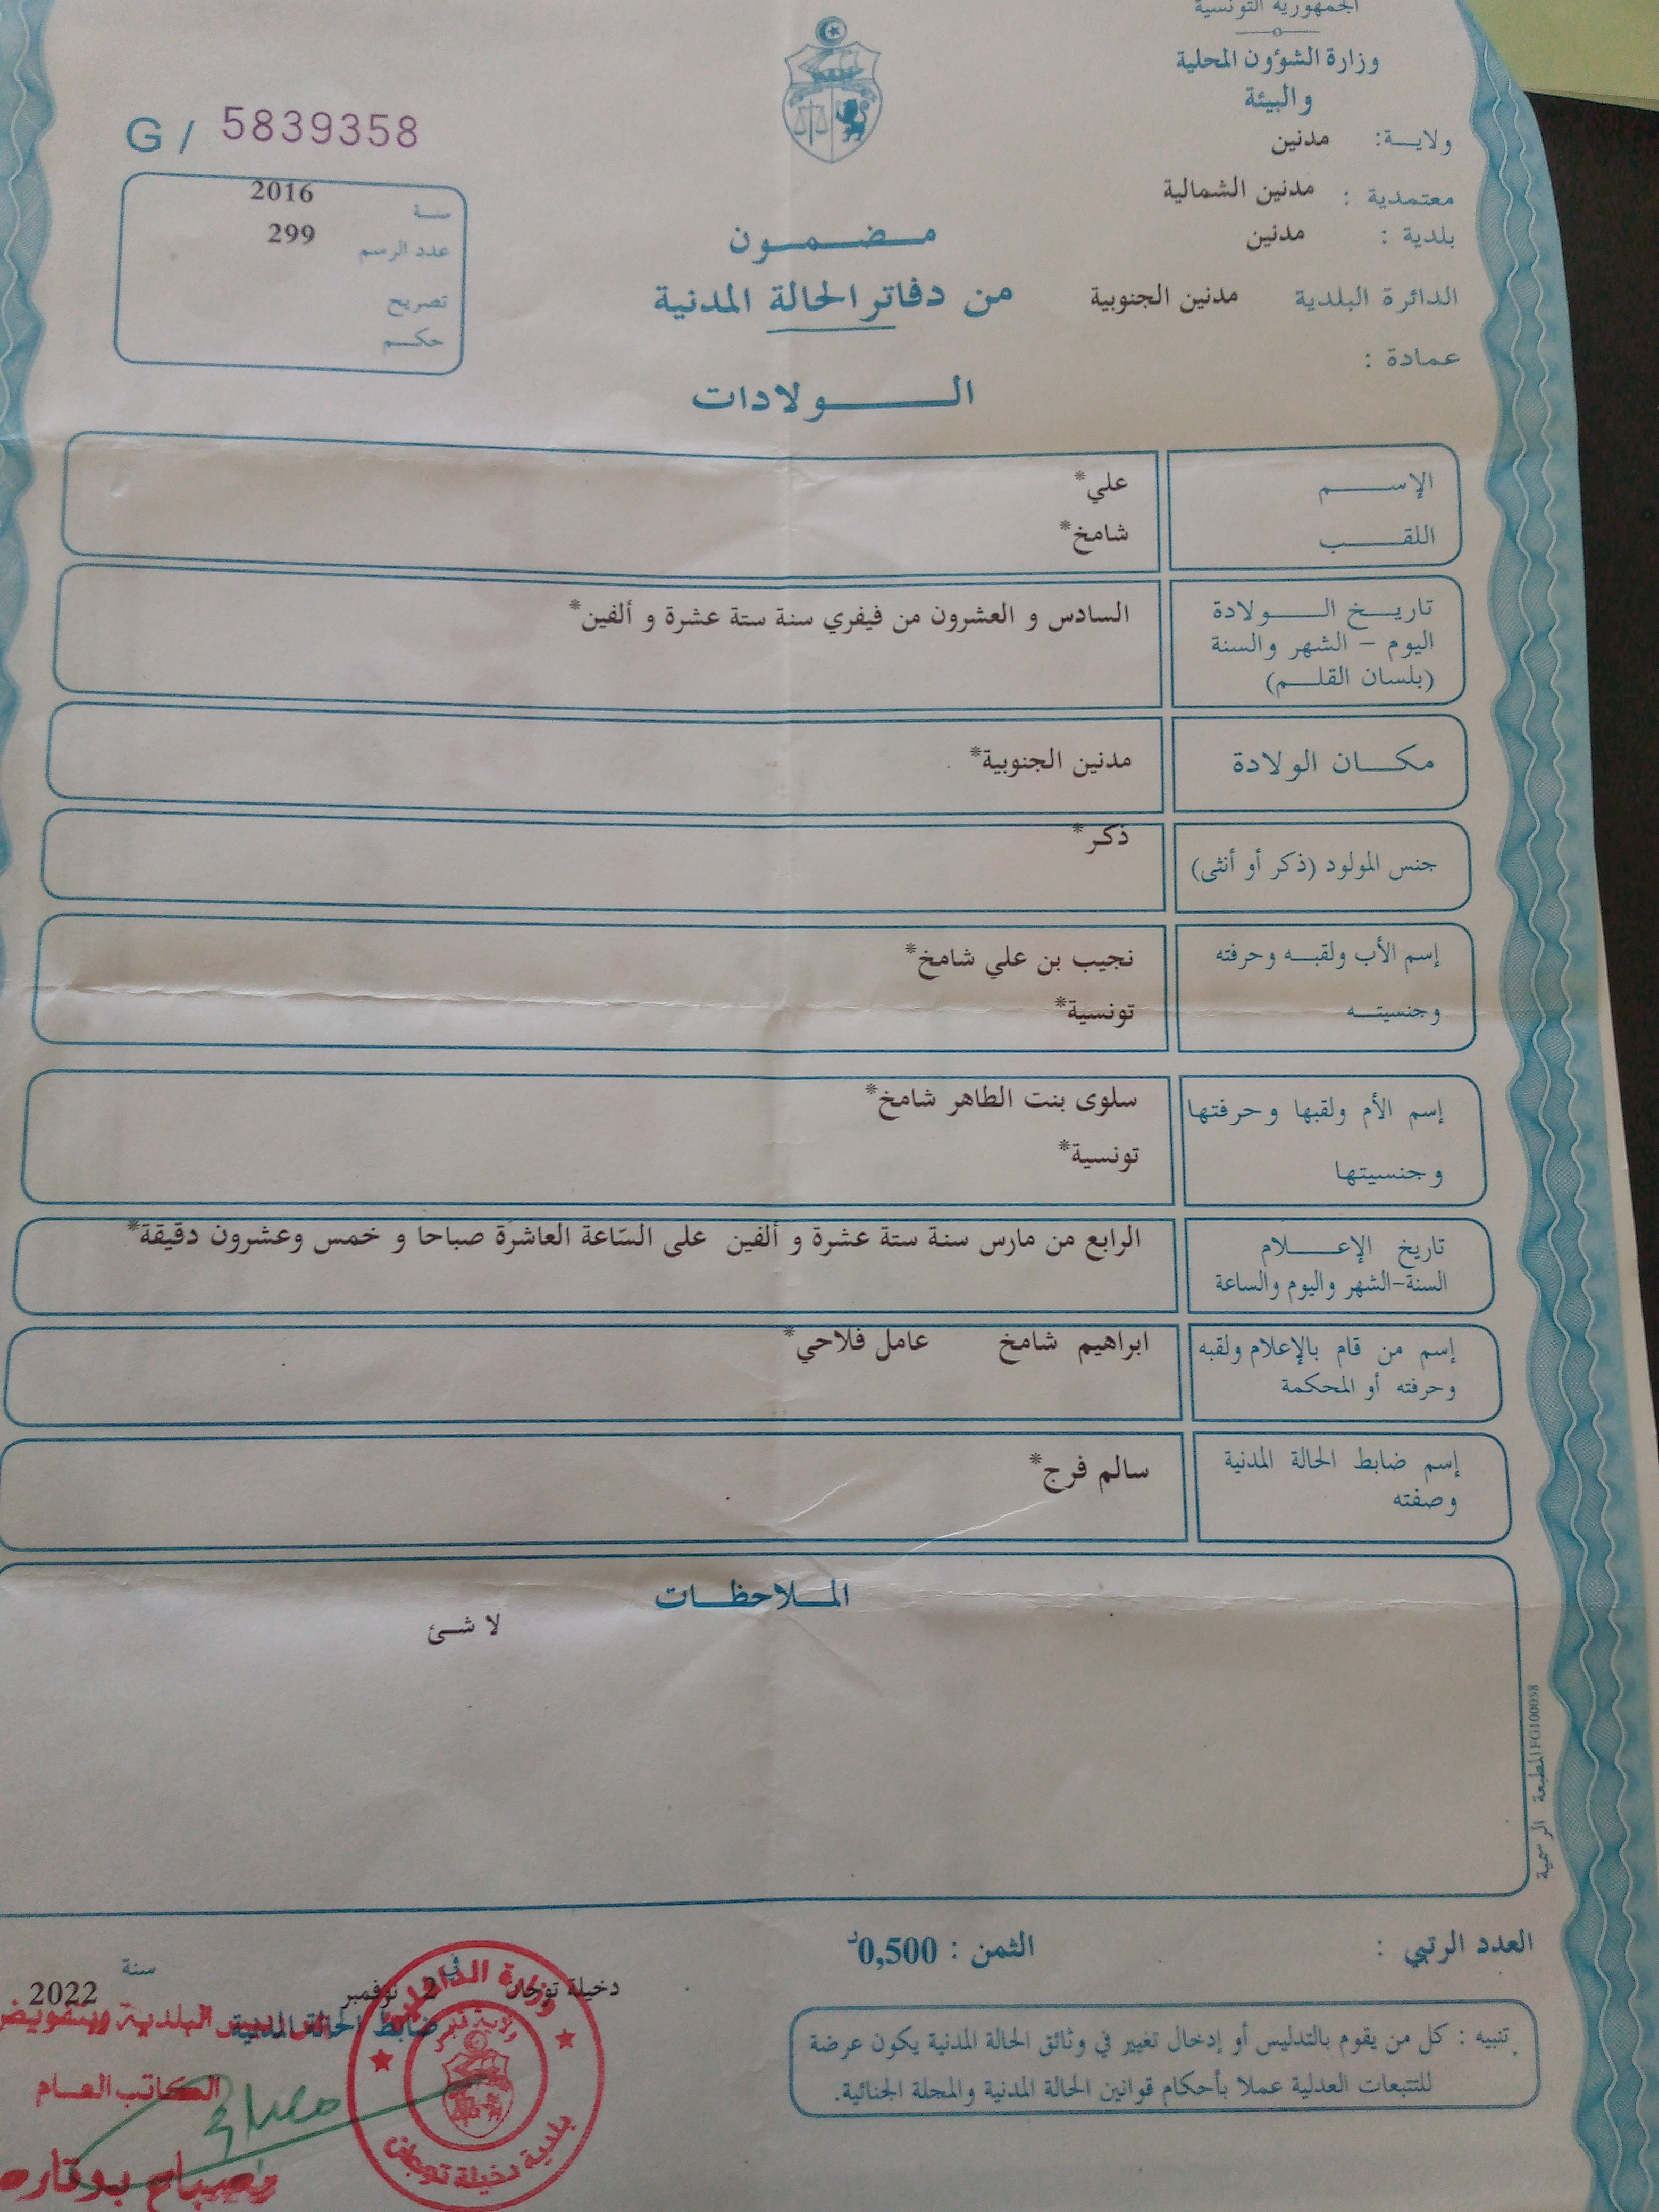 الجمهورية التونسية
وزارة الشؤون المحلية
والبيئة
ولاية: مدنين
معتمدية : مدنين الشمالية
بلدية : مدنين
الدائرة البلدية مدنين الجنوبية
عمادة :
G / 5839358
سنة 2016
عدد الرسم 299
تصريح
حكم
مضمون
من دفاتر الحالة المدنية
الولادات
الإسم علي*
اللقب شامخ*
تاريخ الولادة السادس و العشرون من فيفري سنة ستة عشرة و ألفين*
اليوم – الشهر والسنة
(بلسان القلم)
مكان الولادة مدنين الجنوبية*
جنس المولود (ذكر أو أنثى) ذكر*
إسم الأب ولقبه وحرفته نجيب بن علي شامخ*
وجنسيته تونسية*
إسم الأم ولقبها وحرفتها سلوى بنت الطاهر شامخ*
وجنسيتها تونسية*
تاريخ الإعلام الرابع من مارس سنة ستة عشرة و ألفين على السّاعة العاشرة صباحا و خمس وعشرون دقيقة*
السنة-الشهر واليوم والساعة
إسم من قام بالإعلام ولقبه ابراهيم شامخ عامل فلاحي*
وحرفته أو المحكمة
إسم ضابط الحالة المدنية سالم فرج*
وصفته
الملاحظات
لا شئ
المطبعة الرسمية FG100058
العدد الرتبي :
الثمن : 0,500د
دخيلة توجان في 2 نوفمبر سنة 2022
ضابط الحالة المدنية
البلدية وبتفويض
الكاتب العام
مصباح بوقاره
وزارة الداخلية
ولاية قابس
بلدية دخيلة توجان
تنبيه : كل من يقوم بالتدليس أو إدخال تغيير في وثائق الحالة المدنية يكون عرضة
للتتبعات العدلية عملا بأحكام قوانين الحالة المدنية والمجلة الجنائية.